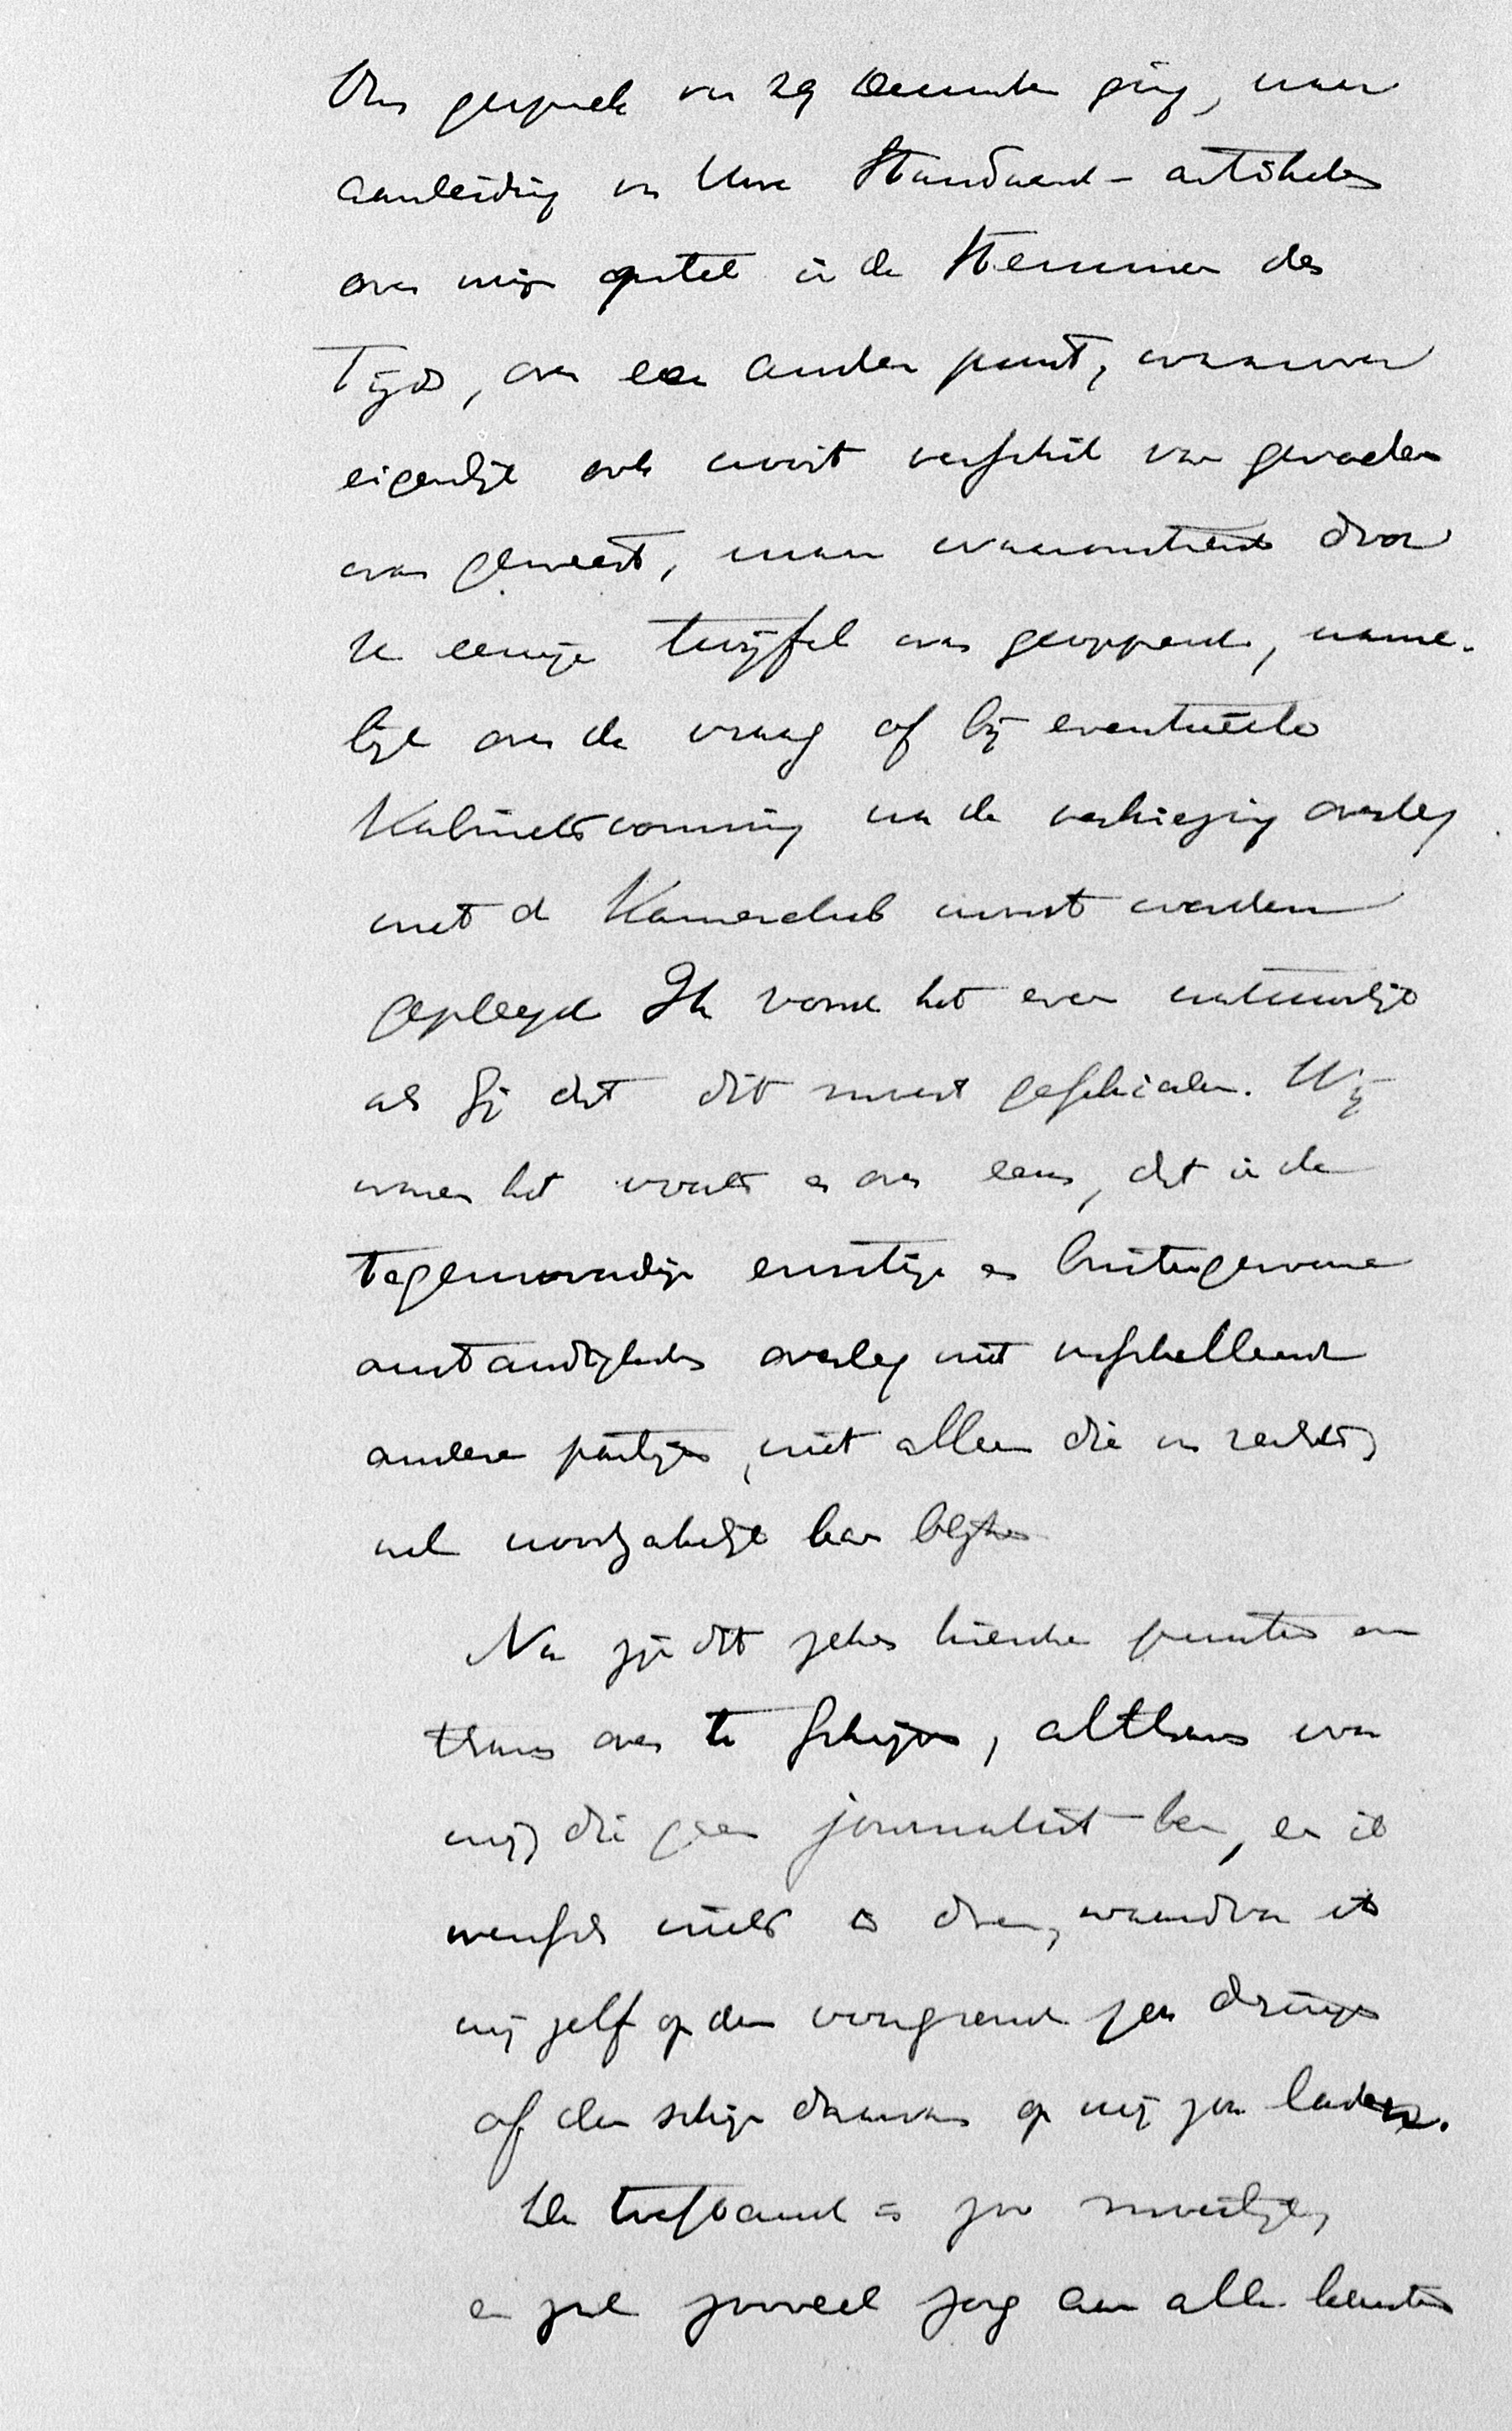 Ons gesprek van 29 December ging, naar
aanleiding van Uwe Standaard-artikelen
over mijn opstel in de Stemmen des
Tijds, over een ander punt, waarover
eigenlijk ook nooit verschil van gevoelen
was geweest, maar waaromtrent door
U eenige twijfel was geopperd, name-
lijk over de vraag of bij eventueele
Kabinetsvorming na de verkiezing overleg
met de Kamerclub moest worden
gepleegd Ik vond het even natuurlijk
als Gij dat dit moest geschieden. Wij
waren het voorts er over eens, dat in de
tegenwoordige ernstige en buitengewone
omstandigheden overleg met verschillende
andere partijen, niet alleen die van rechts,
wel noodzakelijk kan blijken
Nu zijn dit zeker kiesche punten om
thans over te schrijven, althans voor
mij, die geen journalist ben, en ik
wensch niets te doen, waardoor ik
mij zelf op den voorgrond zou dringen
of den schijn daarvan op mij zou laden.
De toestand is zoo moeilijk,
en zal zooveel zorg aan alle kanten